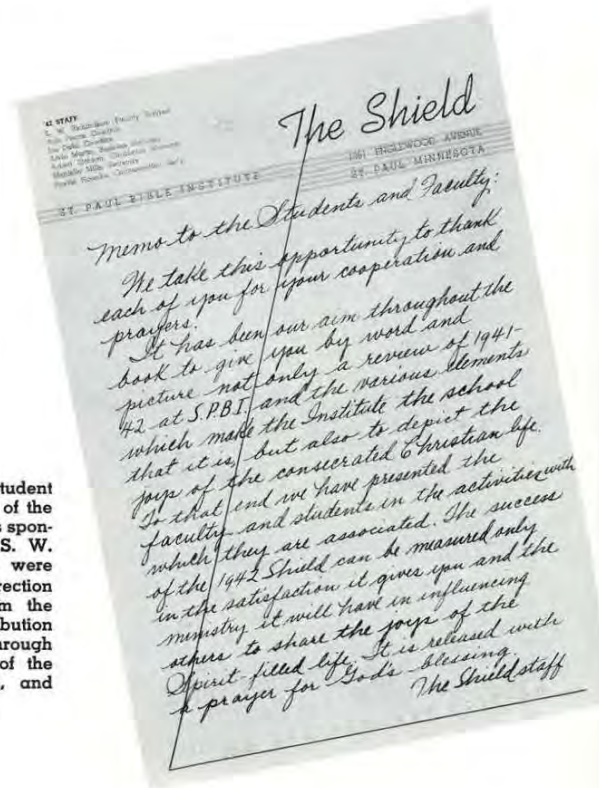 '42 STAFF
The Shield
1361 ENGLEWOOD AVENUE
ST. PAUL MINNESOTA
ST. PAUL BIBLE INSTITUTE
Memo to the Students and Faculty:
We take this opportunity to thank
each of you for your cooperation and
prayers.
It has been our aim throughout the
book to give you by word and
picture not only a review of 1941-
42 at S.P.B.I. and the various elements
which make the Institute the school
that it is, but also to depict the
joys of the consecrated Christian life.
To that end we have presented the
faculty and students in the activities with
which they are associated. The success
of the 1942 Shield can be measured only
in the satisfaction it gives you and the
ministry it will have in influencing
others to share the joys of the
Spirit-filled life. It is released with
a prayer for God's blessing.
The Shield staff
tudent
of the
s spon-
S. W.
were
rection
m the
bution
rough
of the
, and